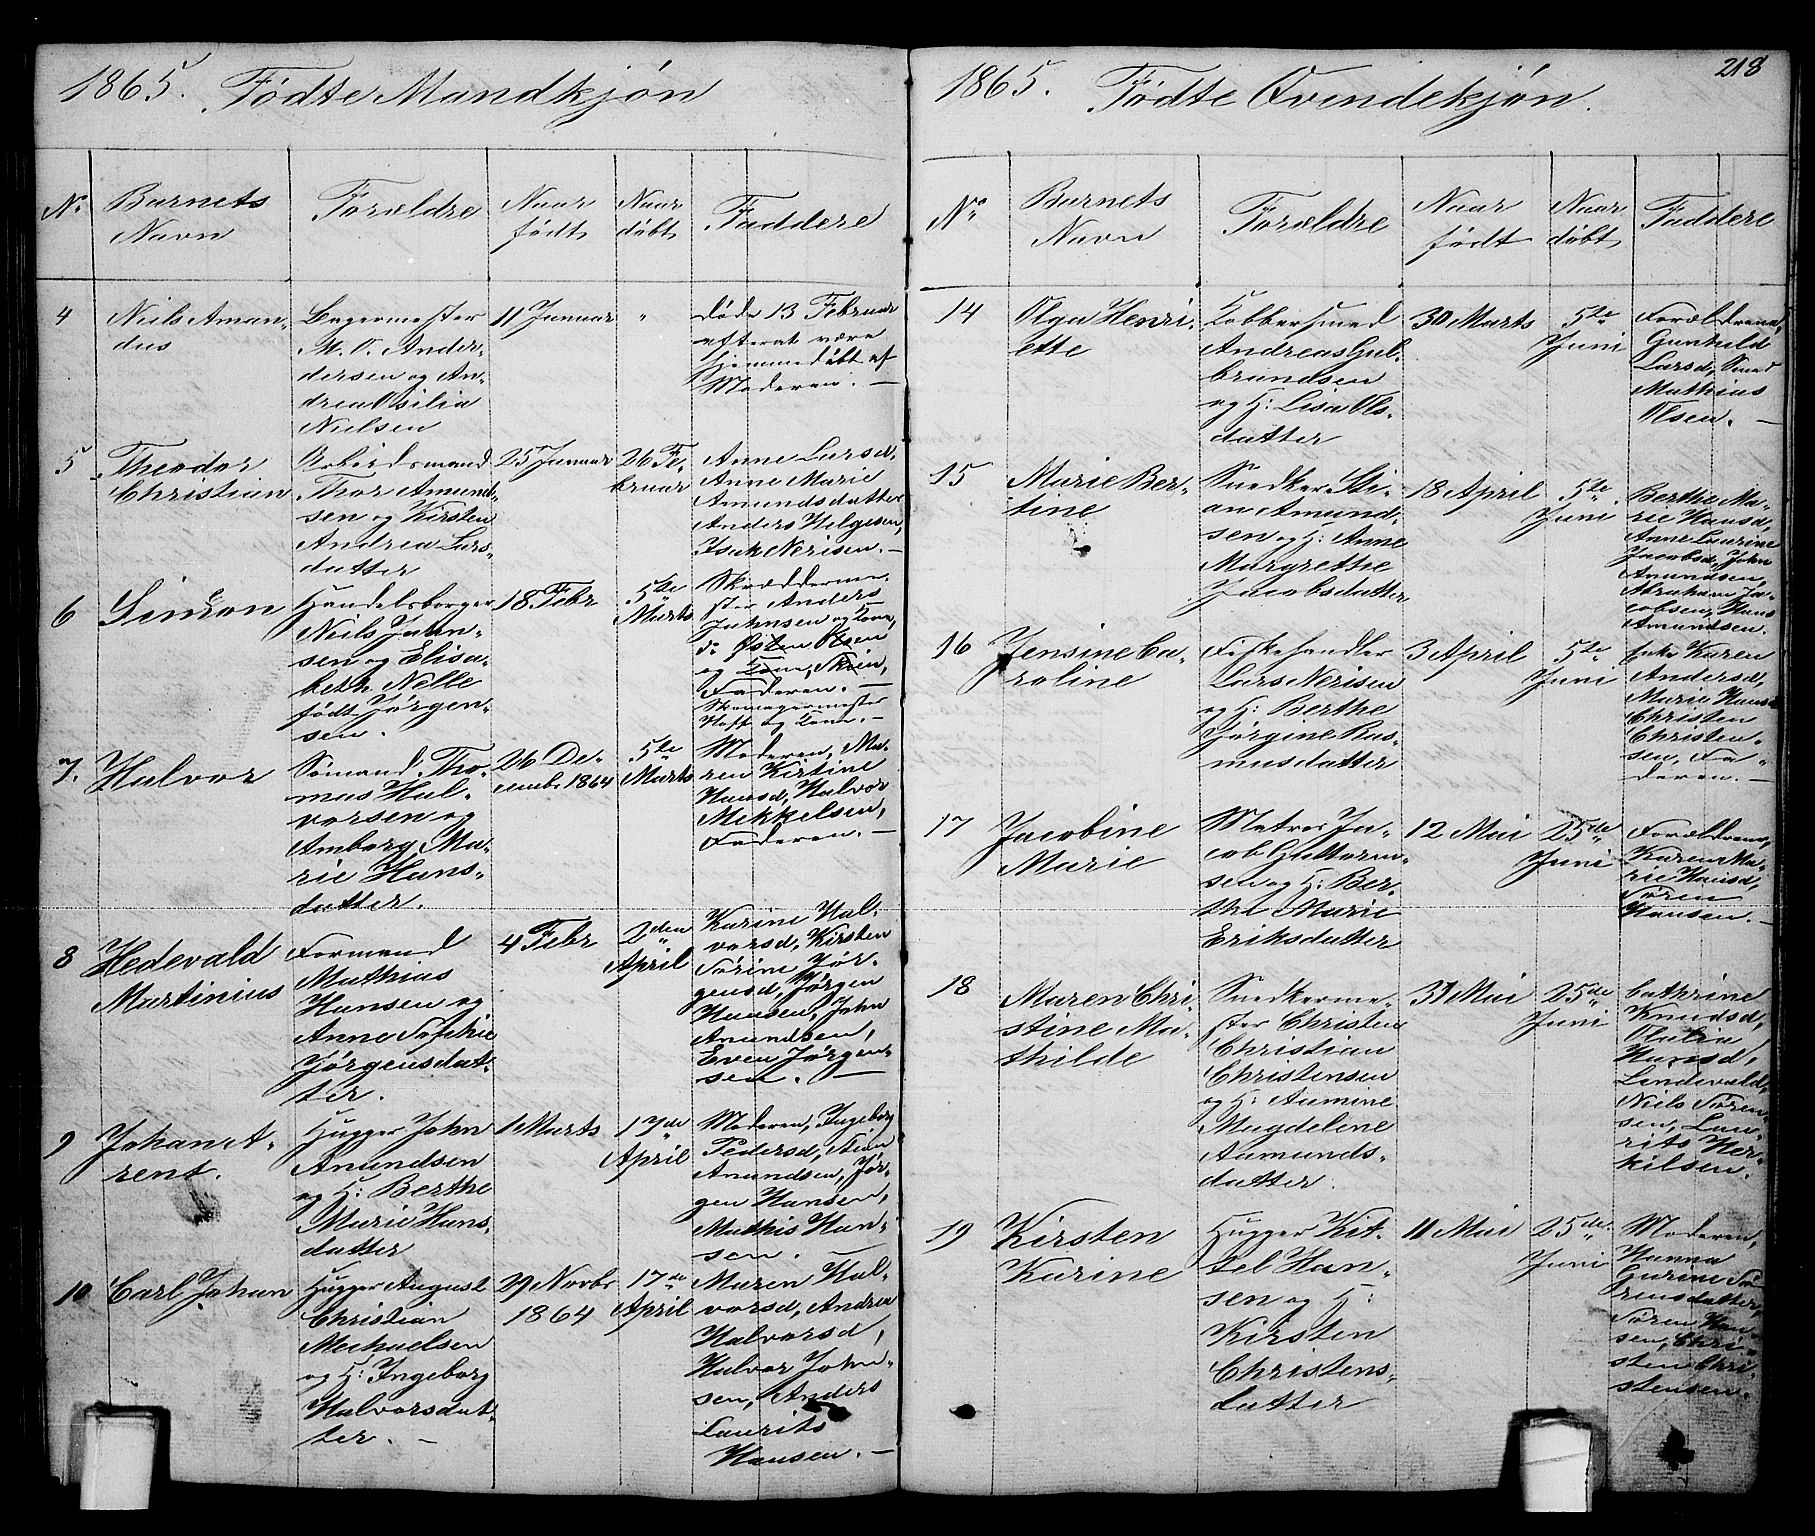 1865. Fødte Mandkjön
No
Barnets
Navn
Forældre
Naar
født
Naar
døbt
Faddere
4
Niels Aman-
dus
Bagermester
M. O. Ander-
dersen og An-
drea Osilia
Nielsen
11 Januar
"
døde 13 Februar
efterat være
hjemmedøbt af
Moderen. –
5
Theodor
Christian
Arbeidsmand
Thor Amund-
sen og Kirsten
Andrea Lars-
datter
25 Januar
26 Fe-
bruar
Anne Larsd,
Anne Marie
Amundsdatter
Anders Helgesen,
Isak Nerisen. –
6
Simon
Handelsborger
Niels John-
sen og Elisa-
beth Nelle
født Jørgen-
sen.
18 Febr
5te
Marts
Skræddermei-
ster Anders
Johnsen og Kone,
do Østen Olsen
og Kone, Skien,
Faderen. –
Skomagermester
Hoff og Kone. –
7.
Halvor
Sømand Tho-
mas Hal-
vorsen og
Amborg Ma-
rie Hans-
datter.
26 De-
cembr 1864
5te
Marts
Moderen, Ma-
ren Kirtine
Hansd, Halvor
Mikkelsen,
Faderen. –
8
Hedevald
Martinius
Formand
Mathias
Hansen og
Anne Sophie
Jørgensdat-
ter.
4 Febr
2den
April
Karine Hal-
vorsd, Kirsten
Sørine Jør-
gensd, Jørgen
Hansen, John
Anundsen,
Even Jørgen-
sen. –
9
Johan A-
rent.
Hugger John
Anundsen
og H: Berthe
Marie Hans-
datter
1 Marts
17de
April
Moderen, Ingeborg
Pedersd, Stian
Anundsen, Jør-
gen Hansen,
Mathis Han-
sen. –
10
Carl Johan
Hugger August
Christian
Mechaelsen
og H: Ingeborg
Halvorsdat-
ter. –
29 Novbr
1864
17de
April
Maren Hal-
vorsd, Andrea
Halvorsd,
Halvor John-
sen, Anders
Laurits
Hansen. –
218
1865. Fødte Qvindekjön.
No
Barnets
Navn
Forældre
Naar
født
Naar
døbt
Faddere
14
Olga Henri-
ette
Kobbersmed
Andreas Gul-
brandsen
og H: Lisa Ols-
datter
30 Marts
5te
Juni
Forældrene,
Gunhild
Larsd, Smed
Mathias
Olsen. –
15
Marie Ber-
tine
Snedker Sti-
an Amund-
sen og H: Anne
Margrethe
Jacobsdatter
18 April
5te
Juni
Berthe Ma-
rie Hansd,
Anne Laurine
Jacobsd, John
Anundsen,
Abraham Ja-
cobsen, Hans
Amundsen.
16
Jensine Ca-
roline
Fiskehandler
Lars Nerisen
og H: Berthe
Jørgine Ras-
musdatter
3 April
5te
Juni
Enke Karen
Andersd,
Marie Hansd
Christen
Christen-
sen, Fa-
deren. –
17
Jacobine
Marie
Matros Ja-
cob Guttorm-
sen og H: Ber-
the Marie
Eriksdatter
12 Mai
25de
Juni
Forældrene,
Karen Ma-
rie Hansd,
Søren
Hansen. –
18
Maren Chri-
stine Ma-
thilde
Snedkerme-
ster Christen
Christian
Christensen
og H: Aumine
Magdeline
Aamunds-
datter.
31 Mai
25de
Juni
Cathrine
Knudsd,
Olalia
Hansd,
Lindevald,
Niels Søren-
sen, Lau-
rits Her-
kilsen.
19
Kirsten
Karine
Hugger Kit-
tel Han-
sen og H:
Kirsten
Christens-
datter
11 Mai
25de
Juni
Moderen,
Hanna
Gurine Sø-
rensdatter,
Søren Han-
sen, Chri-
sten Chri-
stensen.